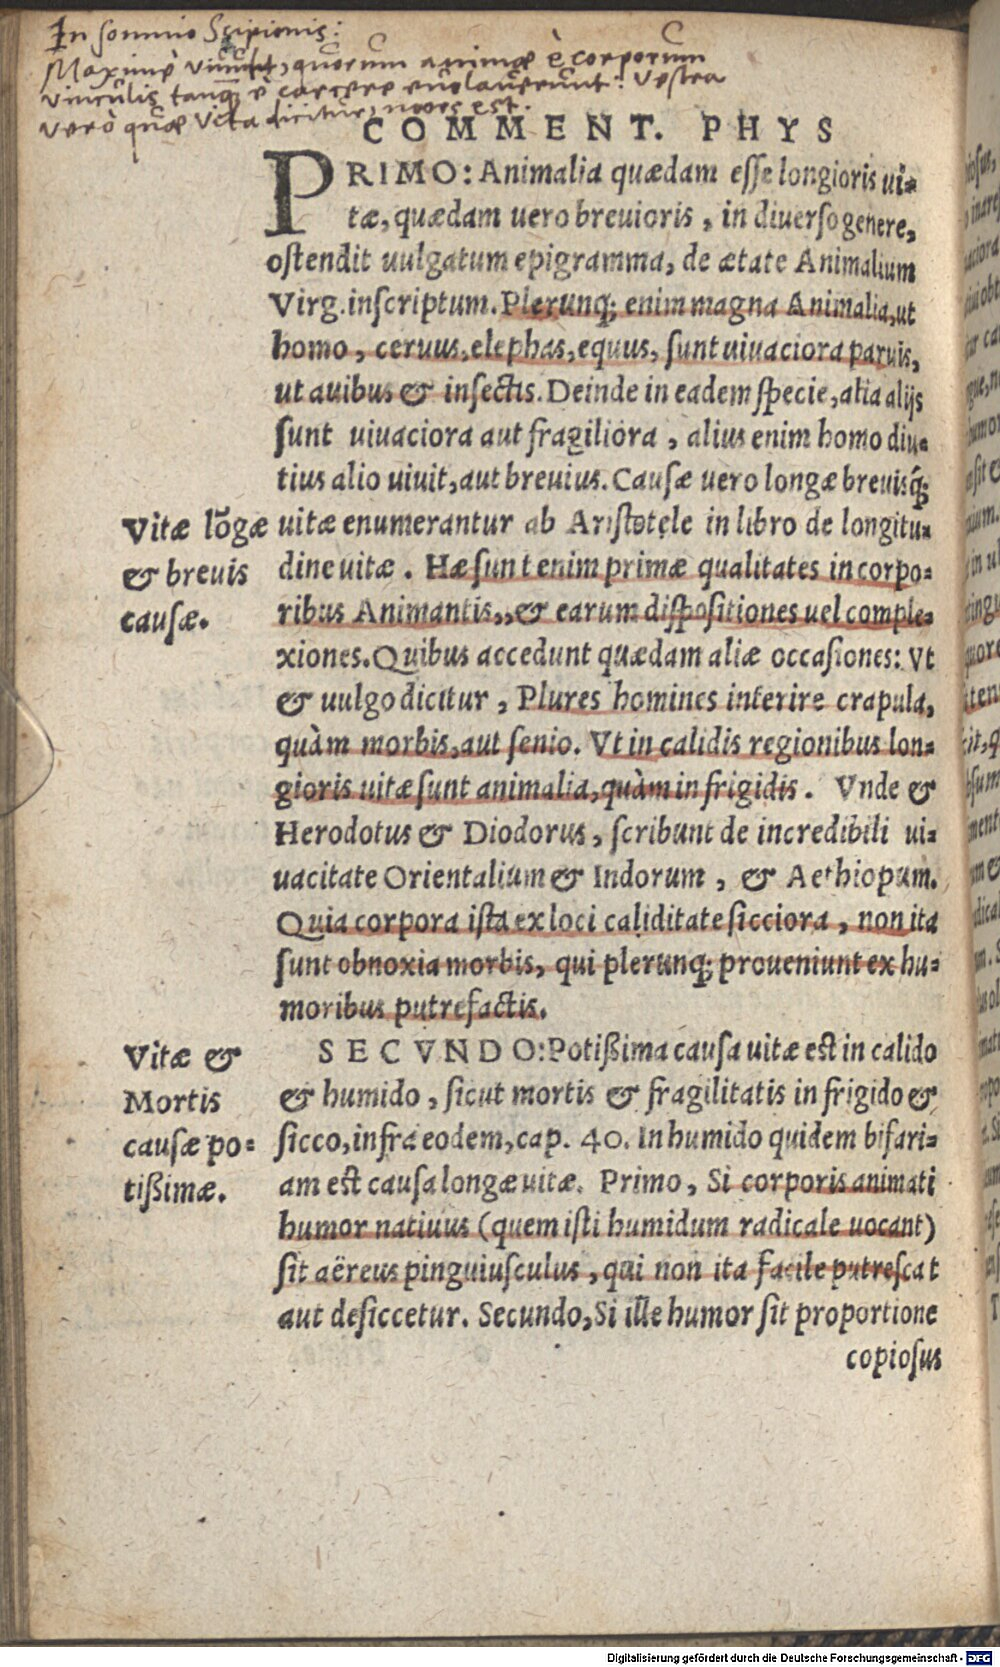 In somnio Scipionis:
Maximè vivunt, quorum animæ è corporum
vinculis tanq̃ è carcere evolaverunt: Vestra
verò quæ Vita dicitur, mors est.
COMMENT. PHYS
PRIMO: Animalia quædam eſſe longioris ui-
tæ, quædam uero breuioris, in diuerſo genere,
oſtendit uulgatum epigramma, de ætate Animalium
Virg. inſcriptum. Plerunq; enim magna Animalia, ut
homo, ceruus, elephas, equus, ſunt uiuaciora paruis,
ut auibus & inſectis. Deinde in eadem ſpecie, alia alijs
ſunt uiuaciora aut fragiliora, alius enim homo diu-
tius alio uiuit, aut breuius. Cauſæ uero longæ breuisq́;
Vitæ lõgæ
& breuis
cauſæ.
uitæ enumerantur ab Ariſtotele in libro de longitu-
dine uitæ. Hæ ſunt enim primæ qualitates in corpo-
ribus Animantis,, & earum diſpoſitiones uel comple-
xiones. Quibus accedunt quædam aliæ occaſiones: Vt
& uulgo dicitur, Plures homines interire crapula,
quàm morbis, aut ſenio. Vt in calidis regionibus lon-
gioris uitæ ſunt animalia, quàm in frigidis. Vnde &
Herodotus & Diodorus, ſcribunt de incredibili ui-
uacitate Orientalium & Indorum, & Aethiopum.
Quia corpora iſta ex loci caliditate ſicciora, non ita
ſunt obnoxia morbis, qui plerunq; proueniunt ex hu-
moribus putrefactis.
Vitæ &
Mortis
cauſæ po-
tißimæ.
SECVNDO: Potißima cauſa uitæ eſt in calido
& humido, ſicut mortis & fragilitatis in frigido &
ſicco, infra eodem, cap. 40. In humido quidem bifari-
am eſt cauſa longæ uitæ. Primo, Si corporis animati
humor natiuus (quem iſti humidum radicale uocant)
ſit aëreus pinguiuſculus, qui non ita facile putreſcat
aut deſiccetur. Secundo, Si ille humor ſit proportione
copioſus
Digitalisierung gefördert durch die Deutsche Forschungsgemeinschaft - DFG